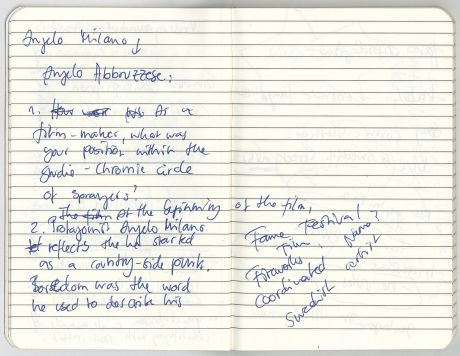 Angelo Milano ↓
Angelo Abbruzzese:
1. As a
film-maker, what was
your position within the
audio-chromie circle
of sprayers?
At the beginning of the film,
2. Protagonist Angelo Milano
reflects he started
as a country-side punk.
Boredom was the word
he used to describe his
Fame Festival
Film, Name?
Fireworks
coordinated artist
Swedish